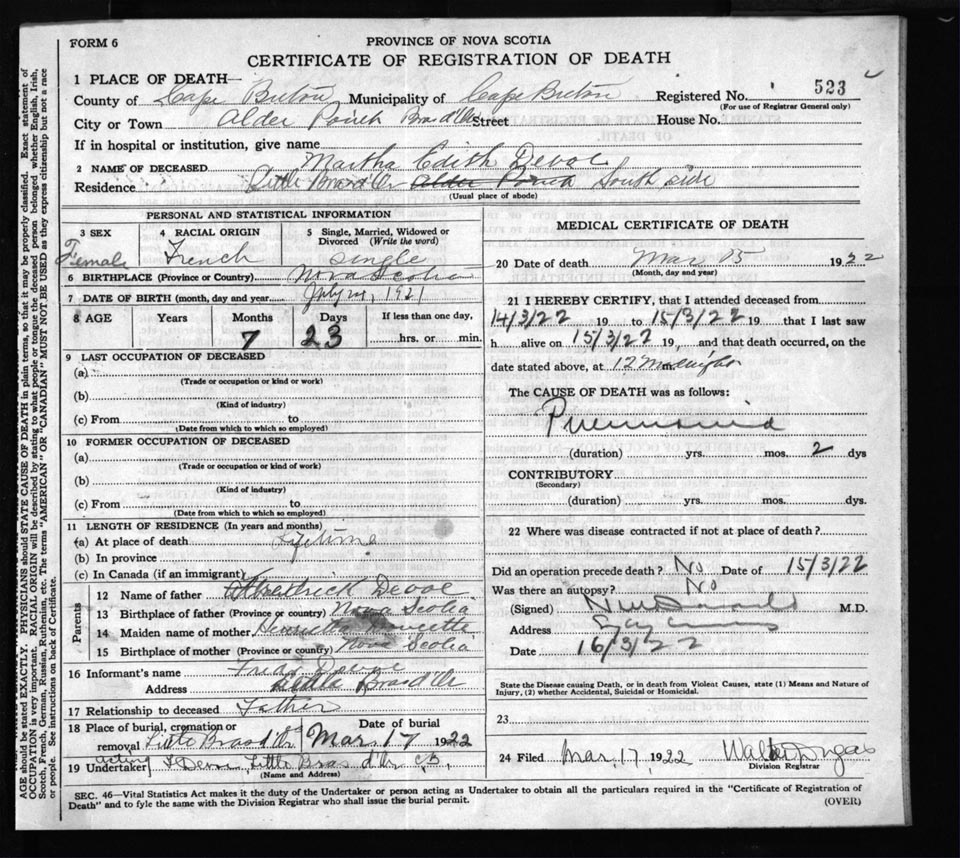 FORM 6
PROVINCE OF NOVA SCOTIA
CERTIFICATE OF REGISTRATION OF DEATH
1 PLACE OF DEATH—
County of Cape Breton Municipality of Cape Breton Registered No. 523
(For use of Registrar General only)
City or Town Alder Point Bras d'Or Street House No.
If in hospital or institution, give name
2 NAME OF DECEASED Martha Edith Devoe
Residence Little Bras d'Or Alder Point South side
(Usual place of abode)
PERSONAL AND STATISTICAL INFORMATION
3 SEX 4 RACIAL ORIGIN 5 Single, Married, Widowed or Divorced (Write the word)
Female French single
6 BIRTHPLACE (Province or Country) Nova Scotia
7 DATE OF BIRTH (month, day and year) July 1921
8 AGE Years Months Days If less than one day,
7 23 hrs. or min.
9 LAST OCCUPATION OF DECEASED
(a)
(Trade or occupation or kind or work)
(b)
(Kind of industry)
(c) From to
(Date from which to which so employed)
10 FORMER OCCUPATION OF DECEASED
(a)
(Trade or occupation or kind of work)
(b)
(Kind of industry)
(c) From to
(Date from which to which so employed)
11 LENGTH OF RESIDENCE (In years and months)
(a) At place of death Lifetime
(b) In province
(c) In Canada (if an immigrant)
Parents
12 Name of father Fredrick Devoe
13 Birthplace of father (Province or country) Nova Scotia
14 Maiden name of mother Henrietta
15 Birthplace of mother (Province or country) Nova Scotia
16 Informant's name Fred Devoe
Address Little Bras d'Or
17 Relationship to deceased Father
18 Place of burial, cremation or removal Little Bras d'Or Date of burial Mar 17 1922
19 Undertaker acting F Devoe Little Bras d'Or CB
(Name and Address)
MEDICAL CERTIFICATE OF DEATH
20 Date of death Mar 15 1922
(Month, day and year)
21 I HEREBY CERTIFY, that I attended deceased from
14/3/22 19 to 15/3/22 19 that I last saw
h alive on 15/3/22 19 , and that death occurred, on the
date stated above, at 12 midnight m.
The CAUSE OF DEATH was as follows:
Pneumonia
(duration) yrs. mos. 2 dys
CONTRIBUTORY
(Secondary)
(duration) yrs. mos. dys.
22 Where was disease contracted if not at place of death?
Did an operation precede death? No Date of 15/3/22
Was there an autopsy? No
(Signed) M.D.
Address
Date 16/3/22
State the Disease causing Death, or in death from Violent Causes, state (1) Means and Nature of Injury, (2) whether Accidental, Suicidal or Homicidal.
23
24 Filed Mar 17, 1922 Walter Dugas
Division Registrar
SEC. 46—Vital Statistics Act makes it the duty of the Undertaker or person acting as Undertaker to obtain all the particulars required in the "Certificate of Registration of
Death" and to fyle the same with the Division Registrar who shall issue the burial permit.
(OVER)
AGE should be stated EXACTLY. PHYSICIANS should STATE CAUSE OF DEATH in plain terms, so that it may be properly classified. Exact statement of
OCCUPATION is very important. RACIAL ORIGIN will be described by stating to what people or tongue the deceased person belonged whether English, Irish,
Scotch, French, German, Russian, Ruthenian, etc. The terms "AMERICAN" OR "CANADIAN" MUST NOT BE USED as they express citizenship but not a race
or people. See instructions on back of Certificate.